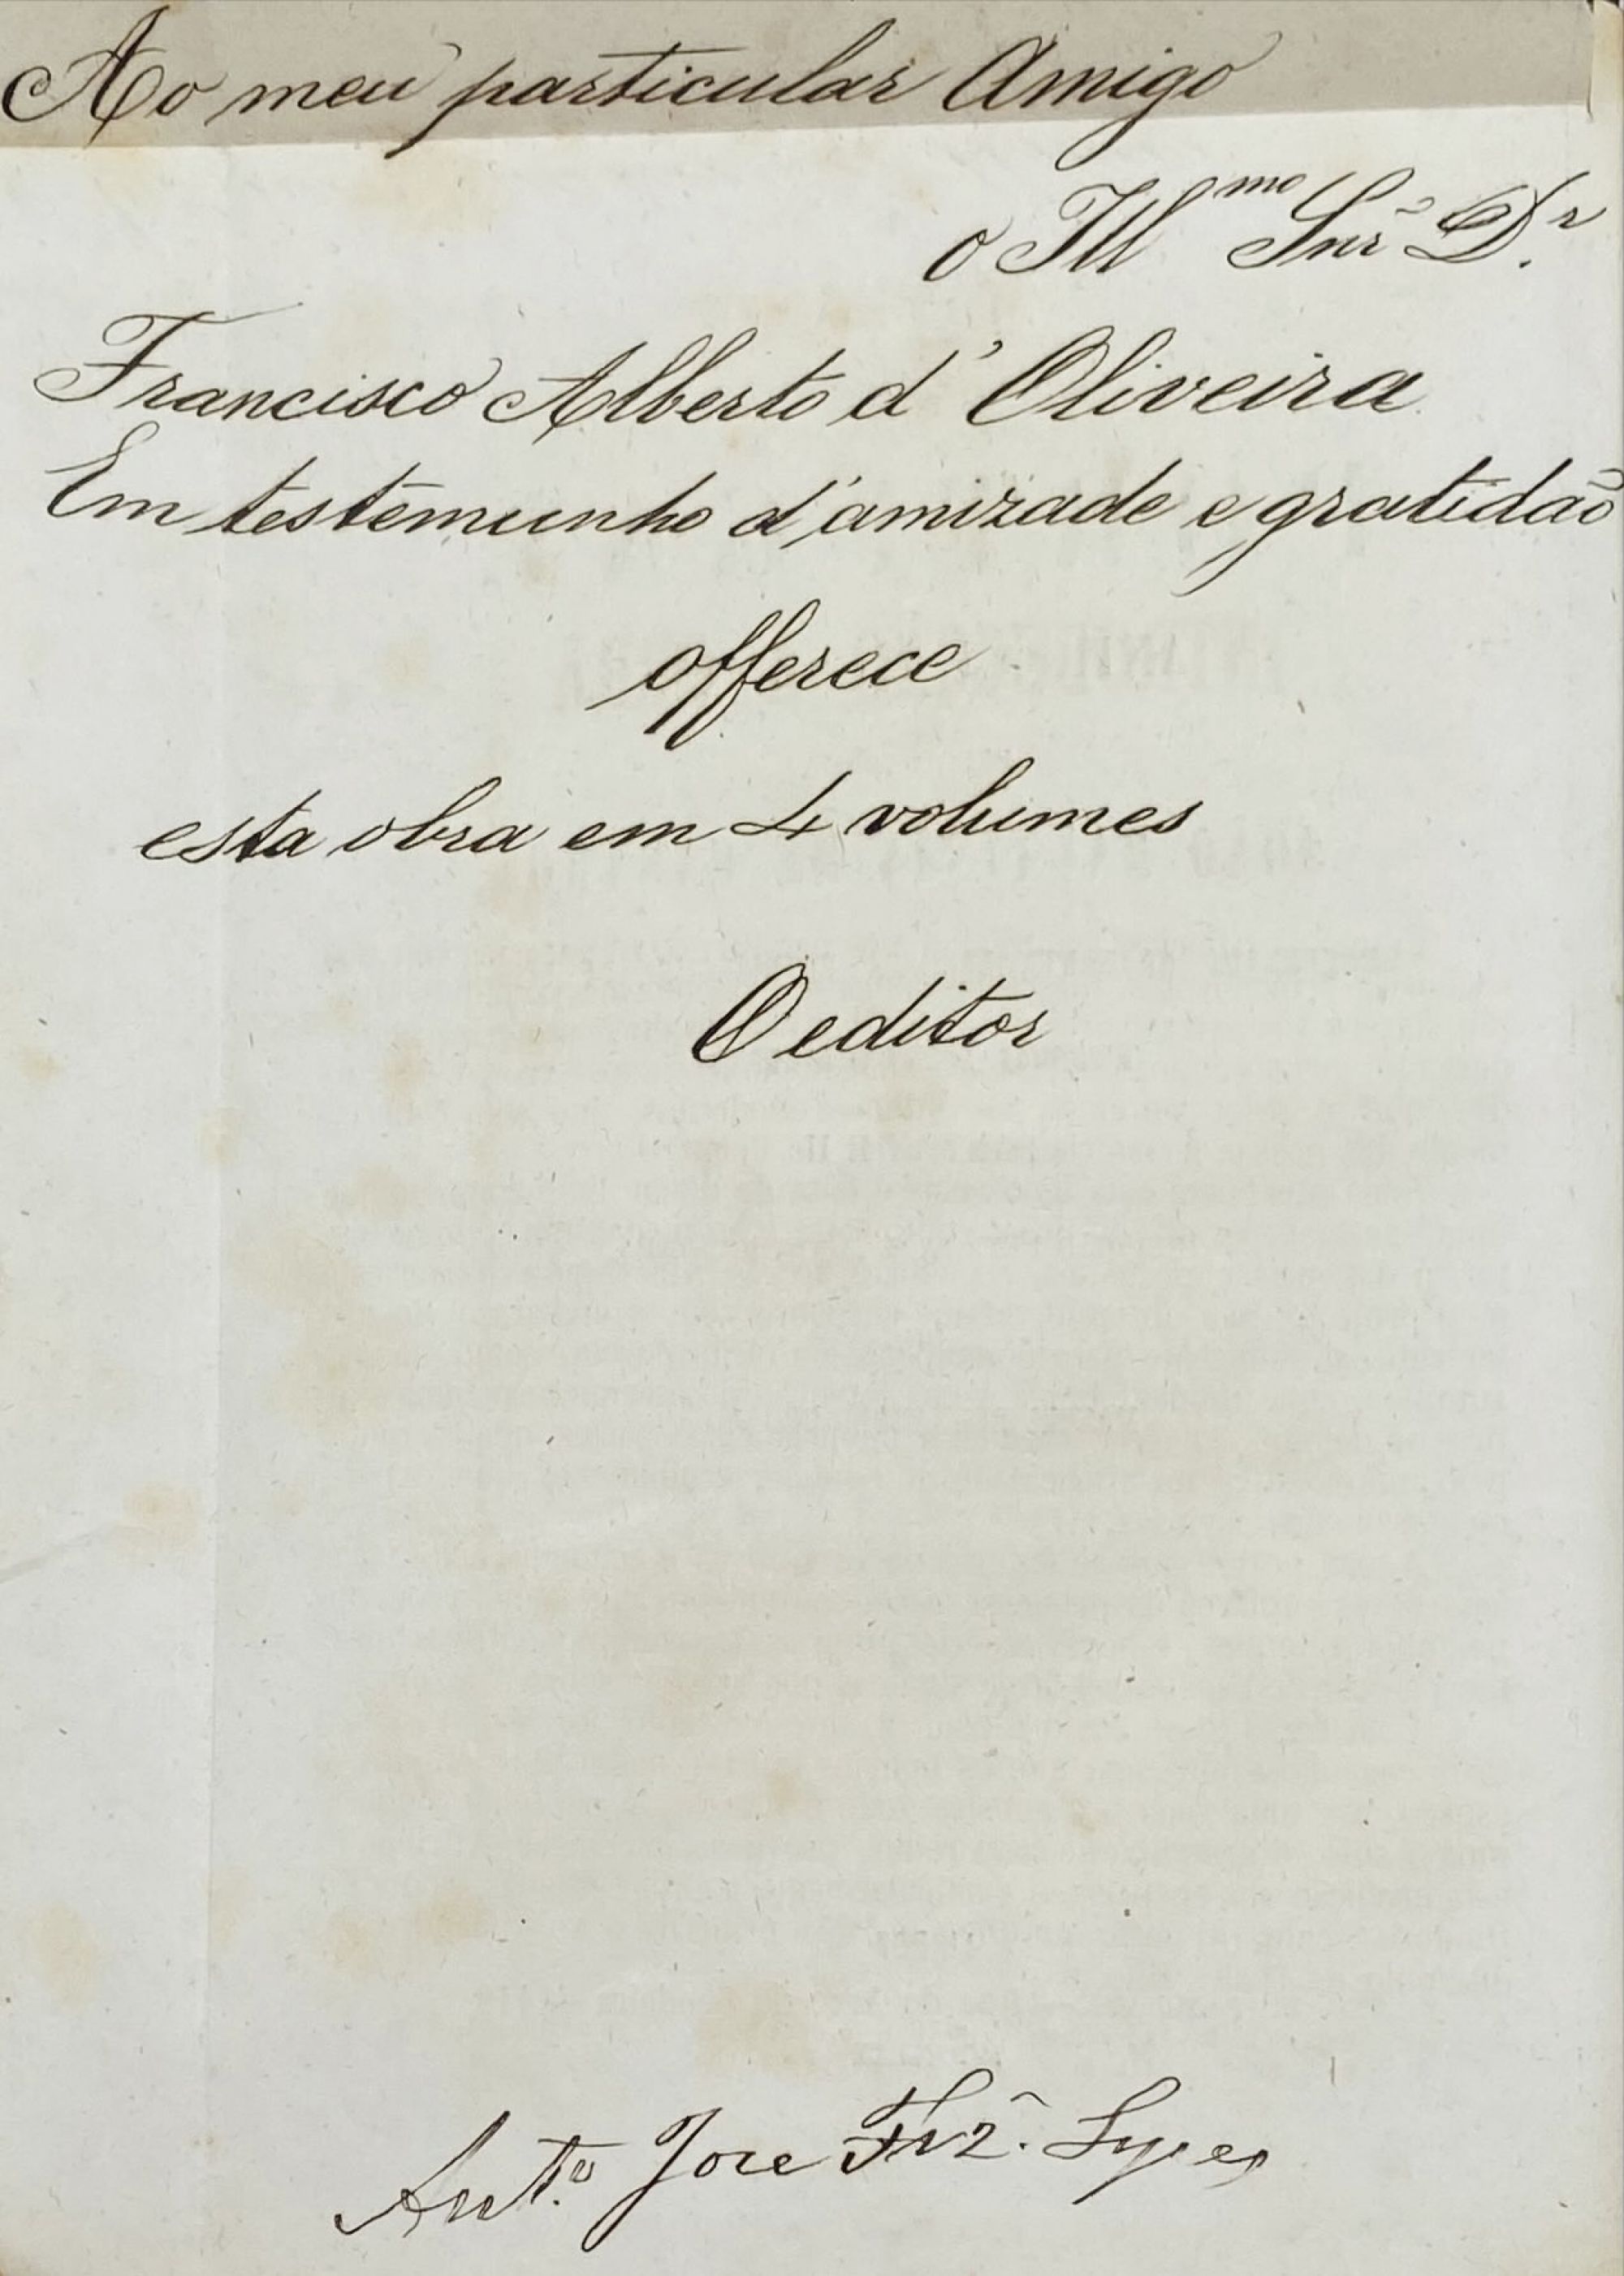 Ao meu particular Amigo
o Ill.mo Snr. Dr.
Francisco Alberto d'Oliveira
Em testemunho d'amizade e gratidão
offerece
esta obra em 4 volumes
O editor
Ant.o Jose Frz. Lopes